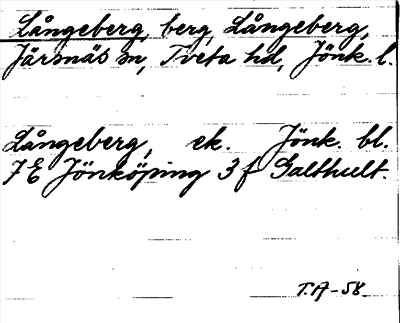 Långeberg, berg, Långeberg,
Järsnäs sn, Tveta hd, Jönk. l.
Långeberg, ek. Jönk. bl.
7E Jönköping 3 f Galthult.
T.A-58